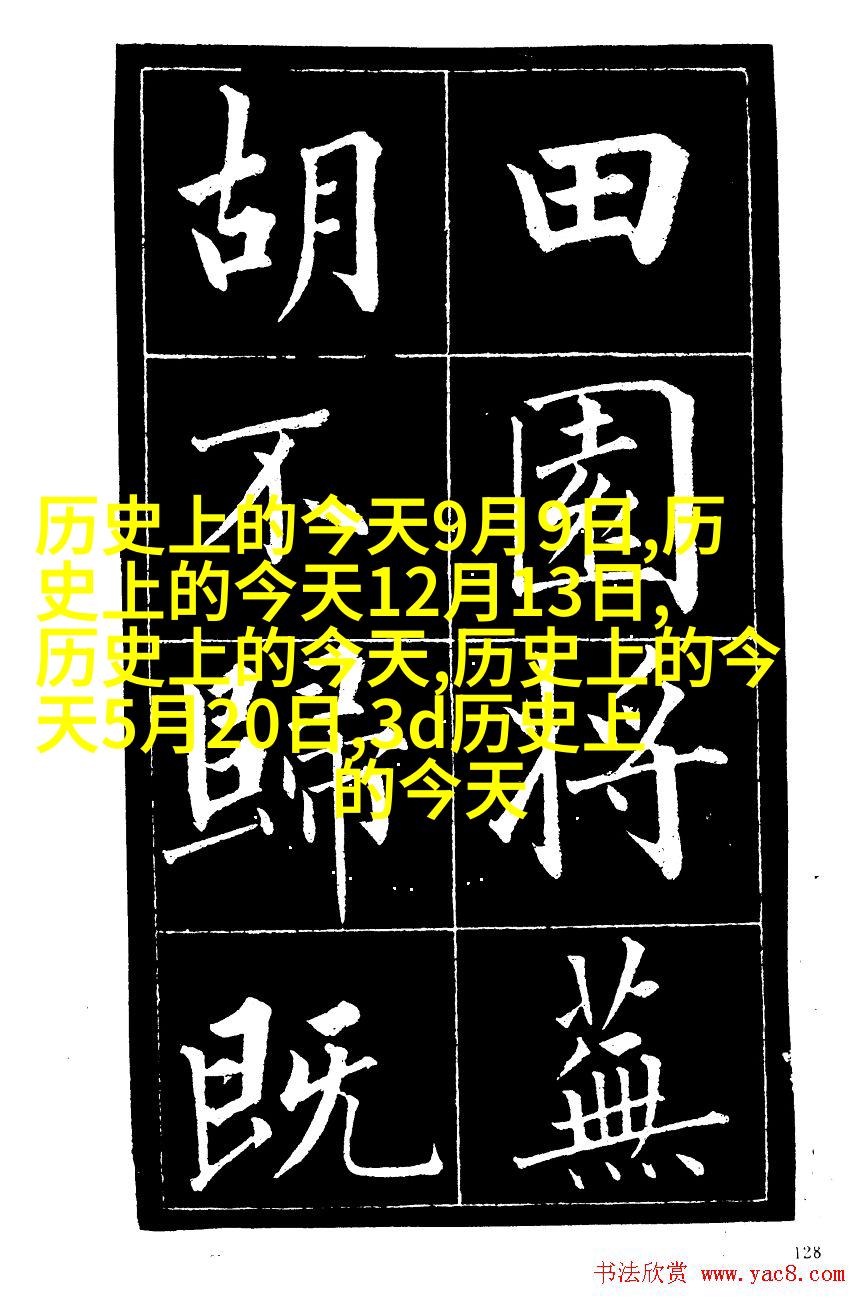 田園将蕪
胡不歸既
历史上的今天9月9日,历
史上的今天12月13日,
历史上的今天,历史上的今
天5月20日,3d历史上
的今天
128
书法欣赏 www.yac8.com